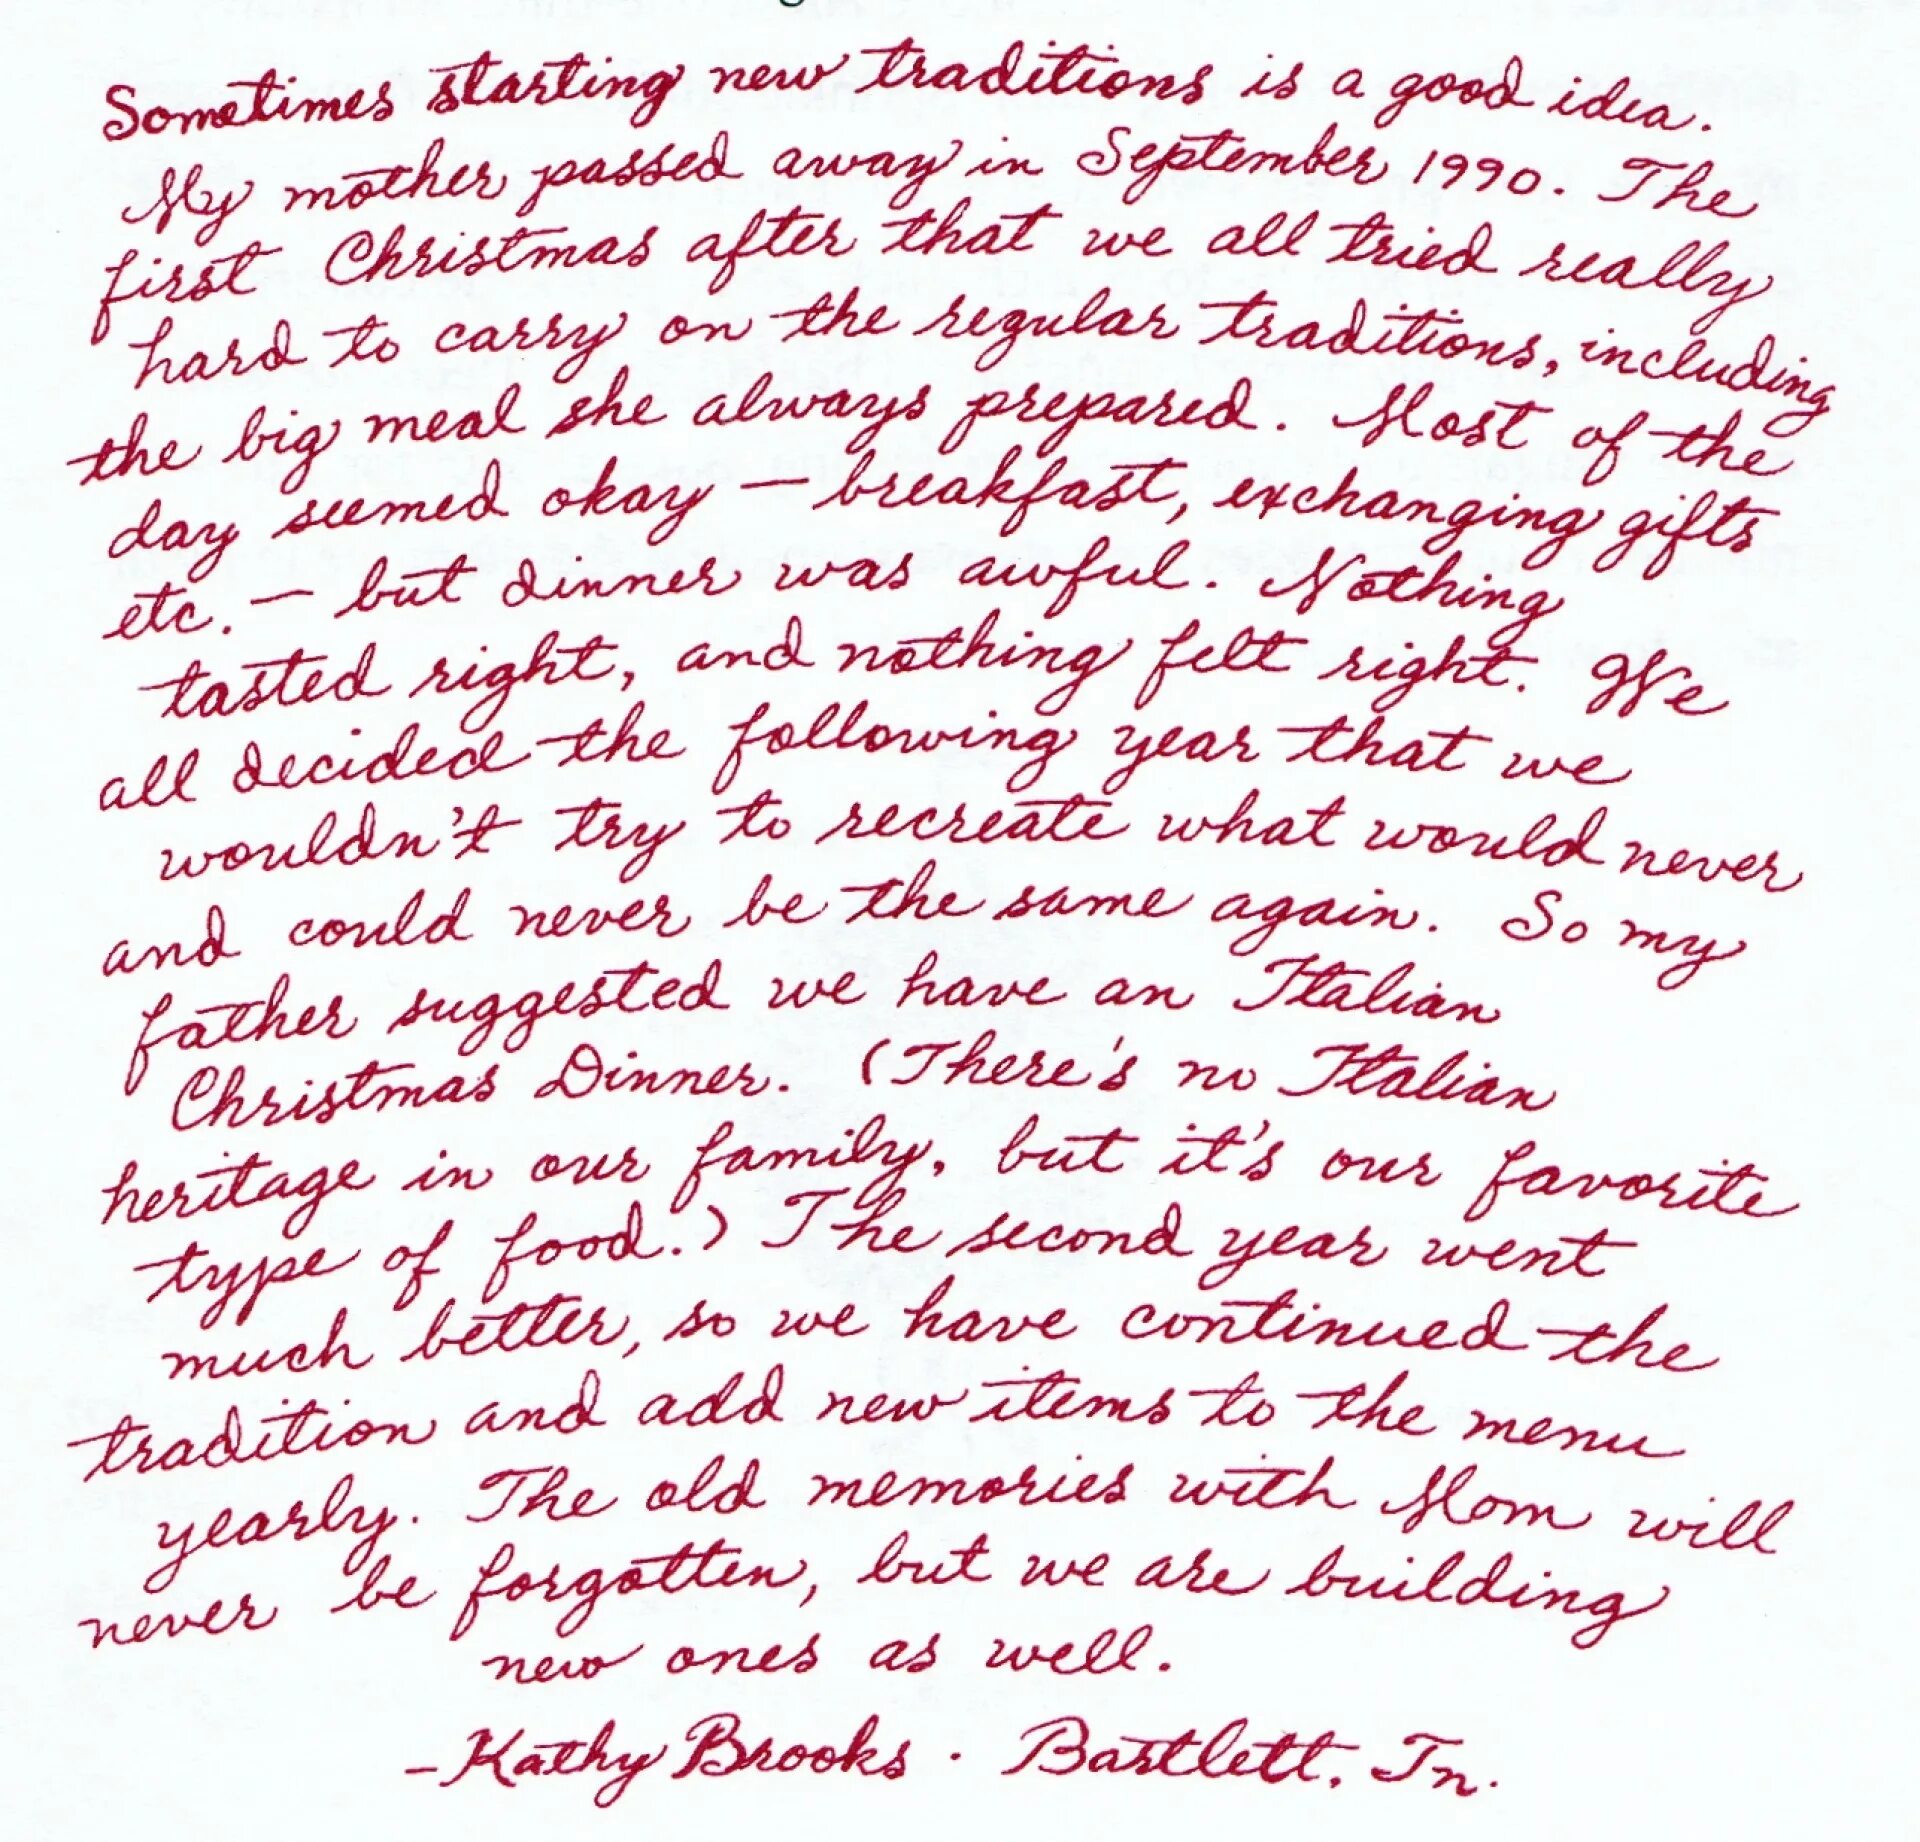 Sometimes starting new traditions is a good idea.
My mother passed away in September 1990. The
first Christmas after that we all tried really
hard to carry on the regular traditions, including
the big meal she always prepared. Most of the
day seemed okay — breakfast, exchanging gifts
etc. — but dinner was awful. Nothing
tasted right, and nothing felt right. We
all decided the following year that we
wouldn't try to recreate what would never
and could never be the same again. So my
father suggested we have an Italian
Christmas Dinner. (There's no Italian
heritage in our family, but it's our favorite
type of food.) The second year went
much better, so we have continued the
tradition and add new items to the menu
yearly. The old memories with Mom will
never be forgotten, but we are building
new ones as well.
- Kathy Brooks · Bartlett, Tn.